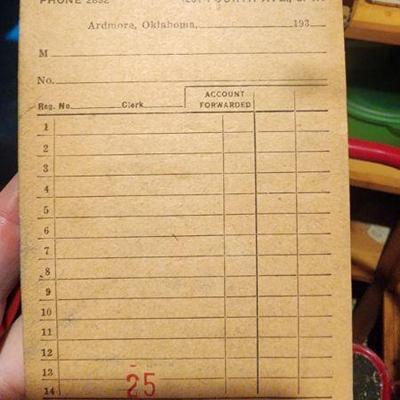 PHONE 2892
Ardmore, Oklahoma, 193
M
No.
Reg. No. Clerk ACCOUNT FORWARDED
1
2
3
4
5
6
7
8
9
10
11
12
13
14
25